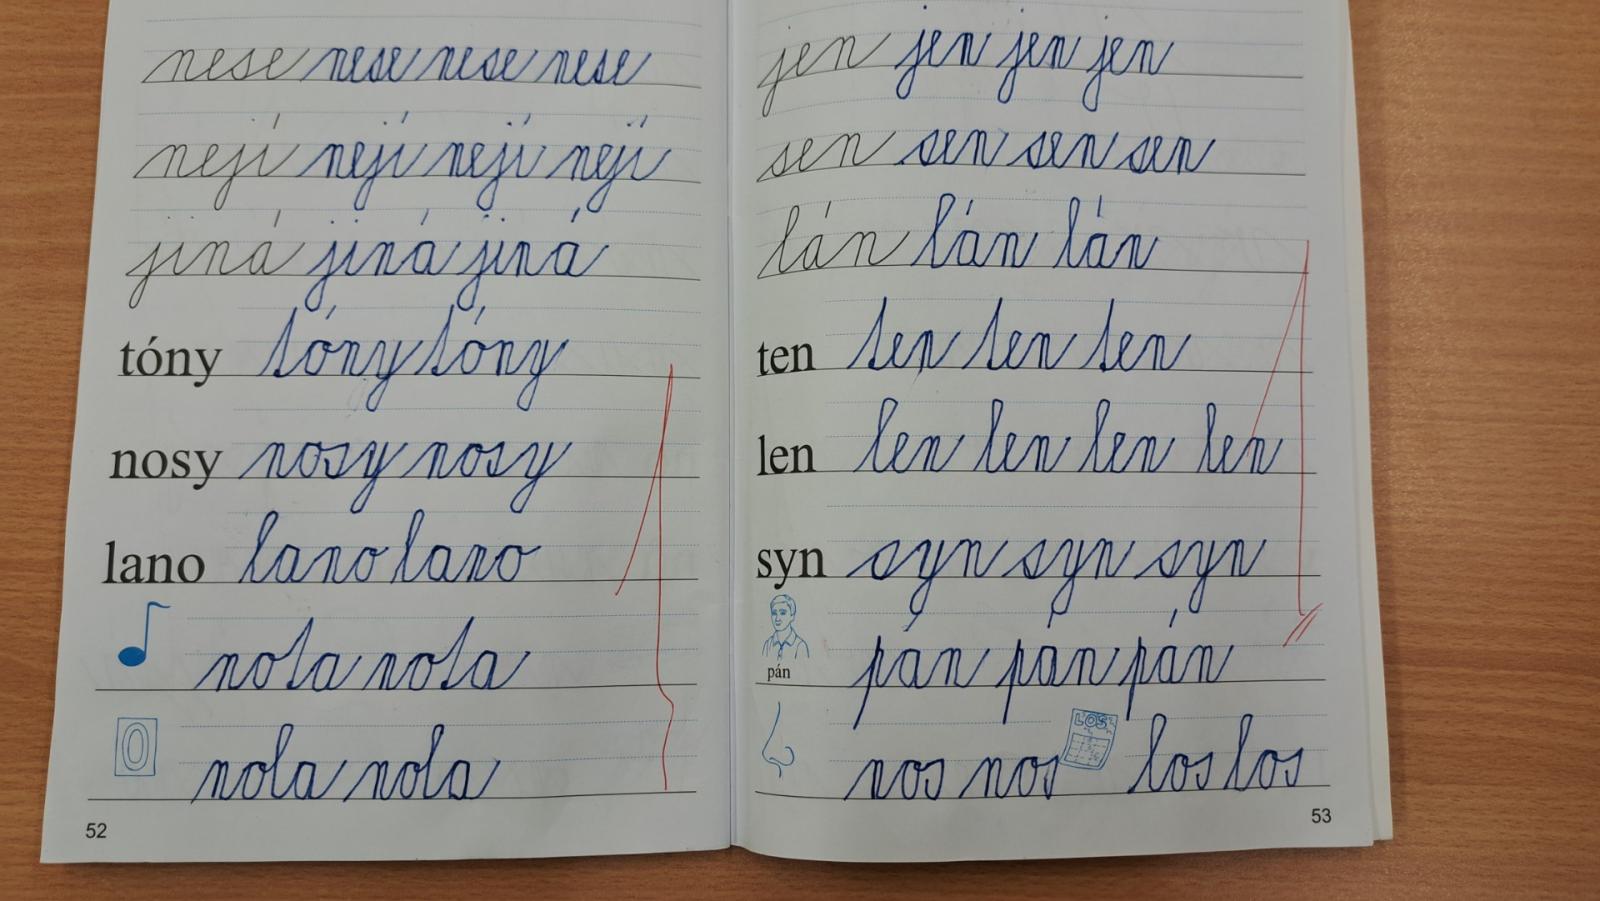 nese nese nese nese
nejí nejí nejí nejí
jiná jiná jiná
tóny tóny tóny
nosy nosy nosy
lano lano lano
nota nota
0 nola nola
52
jen jen jen jen
sen sen sen sen
lán lán lán
ten ten ten ten
len len len len len
syn syn syn syn
pán pán pán pán
nos nos LOS los los
53